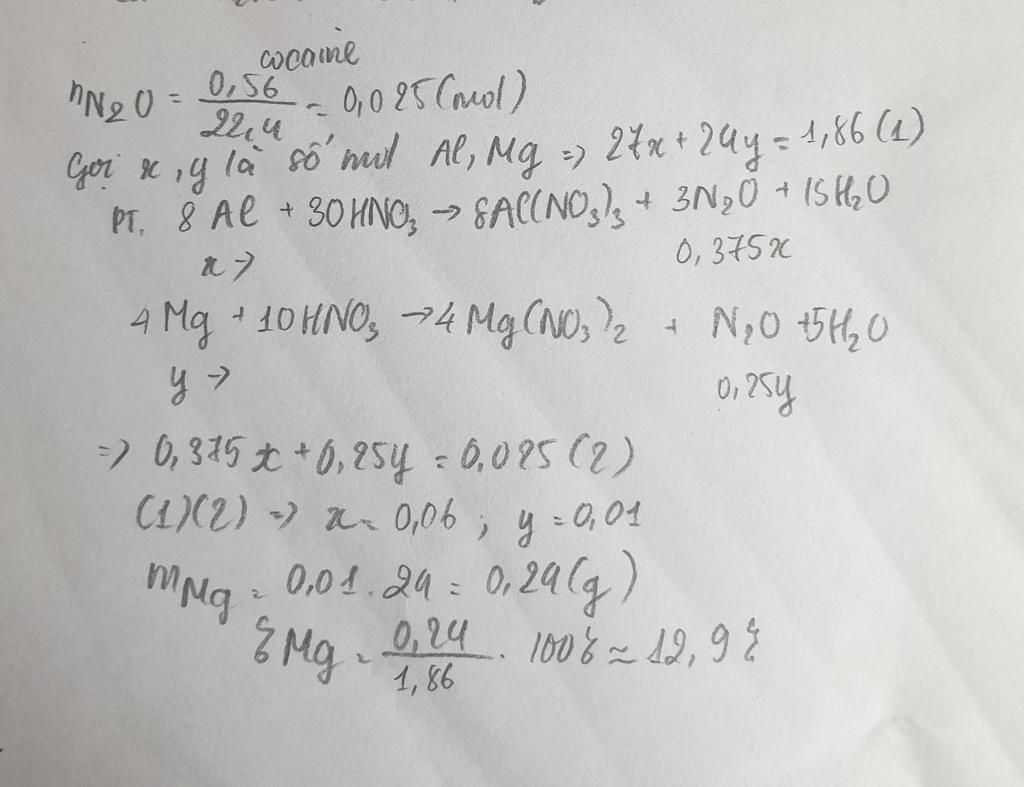 cocaine
nN2O = 0,56/22,4 = 0,025 (mol)
Gọi x, y là số mol Al, Mg => 27x + 24y = 1,86 (1)
PT. 8Al + 30HNO3 → 8Al(NO3)3 + 3N2O + 15H2O
x → 0,375x
4Mg + 10HNO3 → 4Mg(NO3)2 + N2O + 5H2O
y → 0,25y
=> 0,375x + 0,25y = 0,025 (2)
(1)(2) => x = 0,06 ; y = 0,01
mMg = 0,01 . 24 = 0,24 (g)
%Mg = 0,24/1,86 . 100% ≈ 12,9%